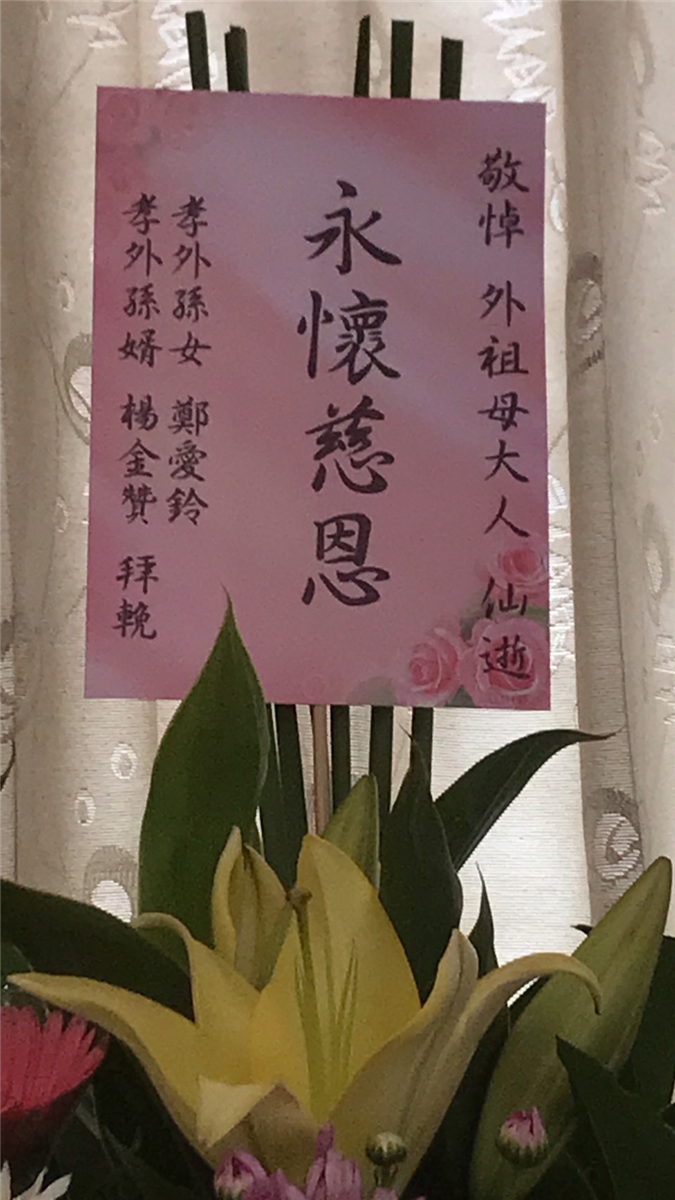 敬悼 外祖母大人 仙逝
永懷慈恩
孝外孫女 鄭愛鈴
孝外孫婿 楊金贊 拜輓